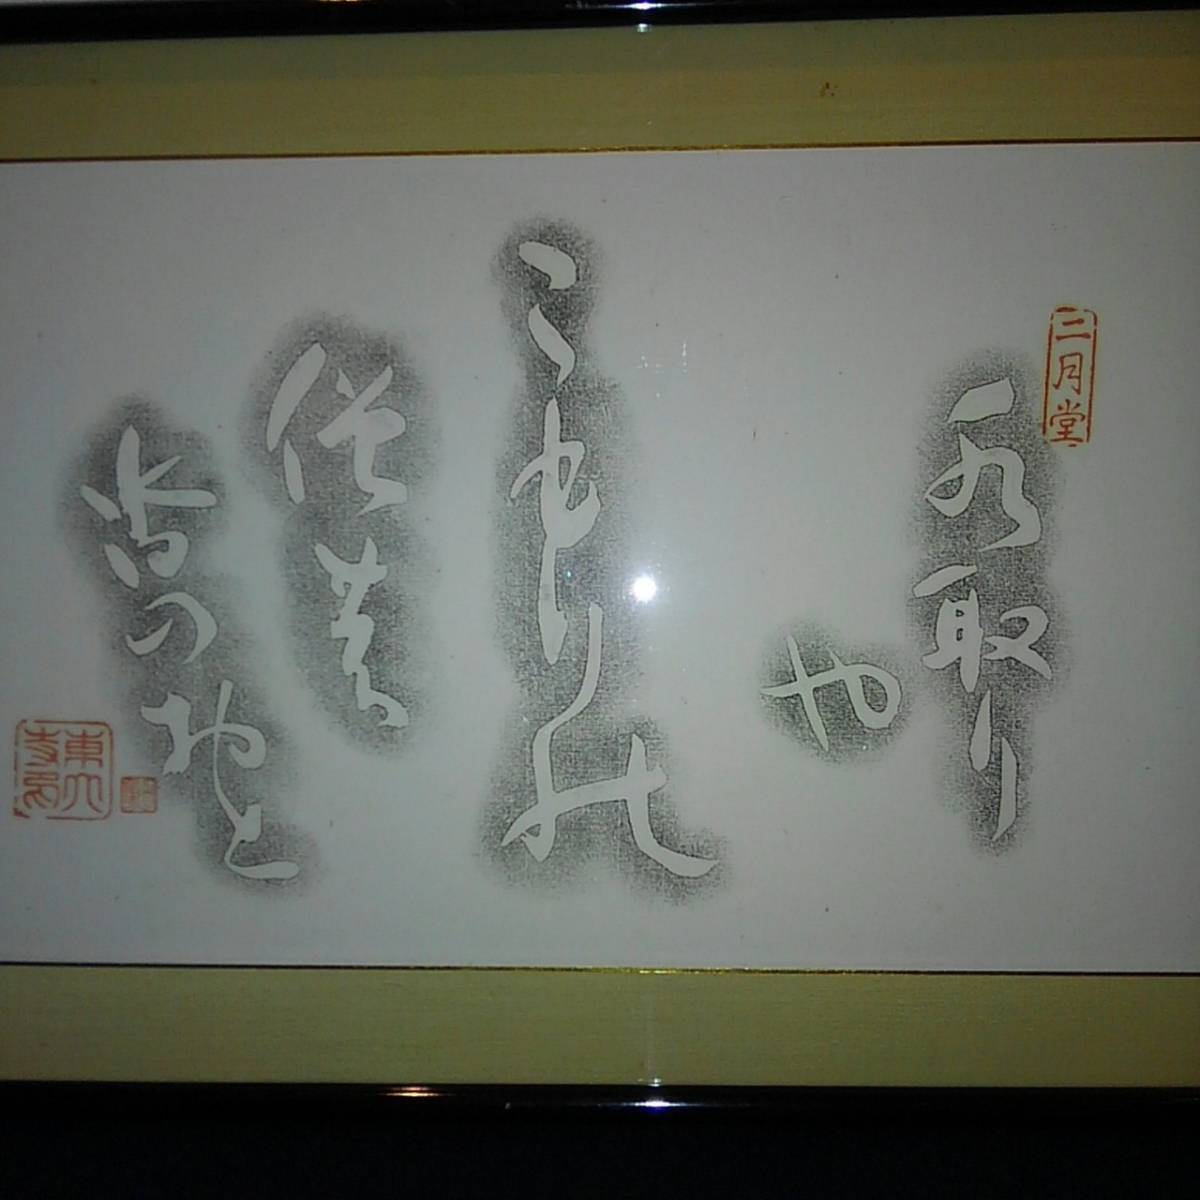 二月堂
水取り
や
こもりの
僧の
沓のおと
東大寺